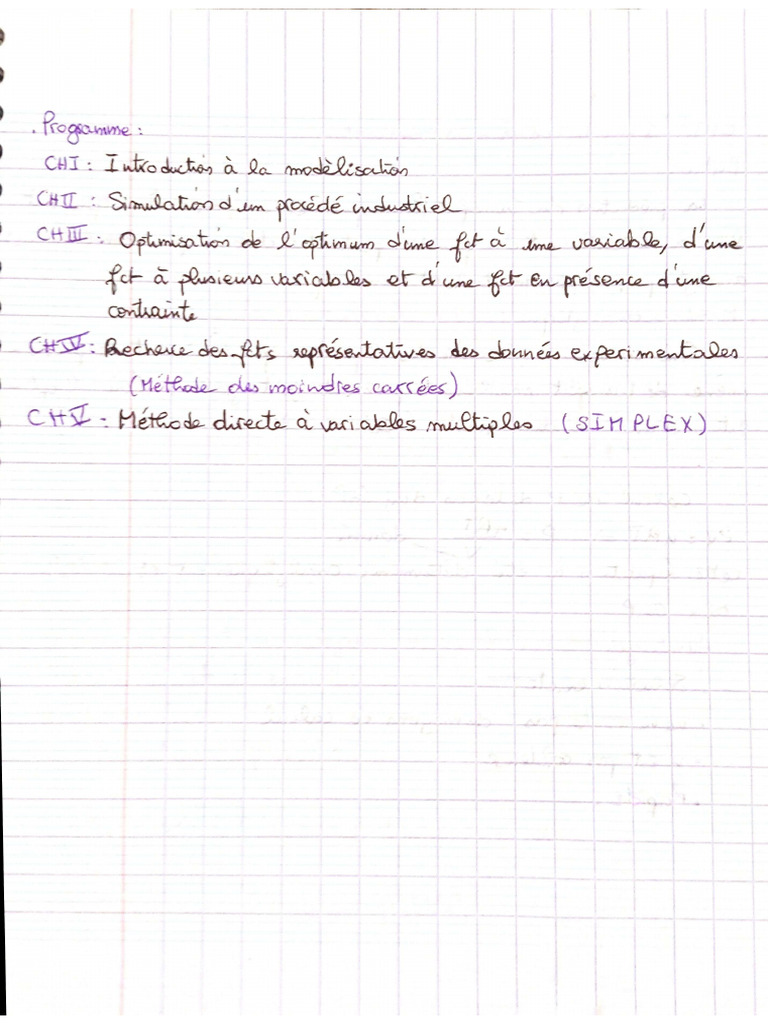 . Programme :
CHI : Introduction à la modèlisation
CHII : Simulation d'un procédé industriel
CHIII : Optimisation de l'optimum d'une fct à une variable, d'une
fct à plusieurs variables et d'une fct en présence d'une
contrainte
CHIV : Recherce des fcts représentatives des données experimentales
(Méthode des moindres carrées)
CHV : Méthode directe à variables multiples (SIMPLEX)